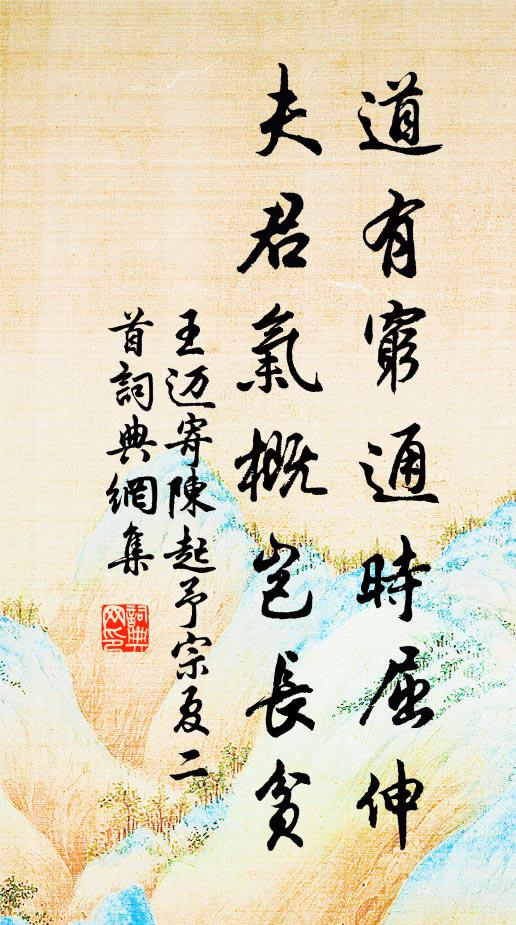 道有窮通時屈伸
夫君氣概豈長貧
王迈寄陳起予宗夏二
首詞典網集
詞典
网印